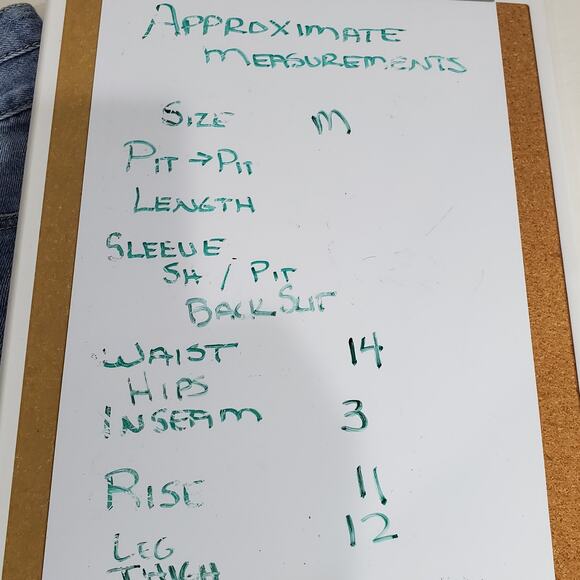 APPROXIMATE
MEASUREMENTS
SIZE M
PIT → PIT
LENGTH
SLEEVE
SH / PIT
BACK SLIT
WAIST 14
HIPS
INSEAM 3
RISE 11
LEG 12
THIGH